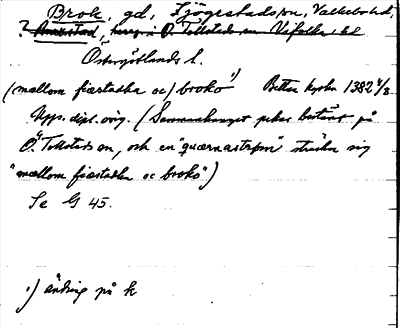 Brok, gd, Fjögestads sn, Valkebo hd,
? Annestad, hurv i Ö. Tollstads sn Vifolka hd
Östergötlands l.
(mellom fiæstadha oc) broko 1) Bettna kyrka 1382 4/3
Upps. dipl. orig. (Sammanhanget pekar bestämt på
Ö. Tollstads sn, och en "quærnastrøm" sträcka sig
"mællom fiæstadha oc broko")
Se G 45.
1) ändring på k